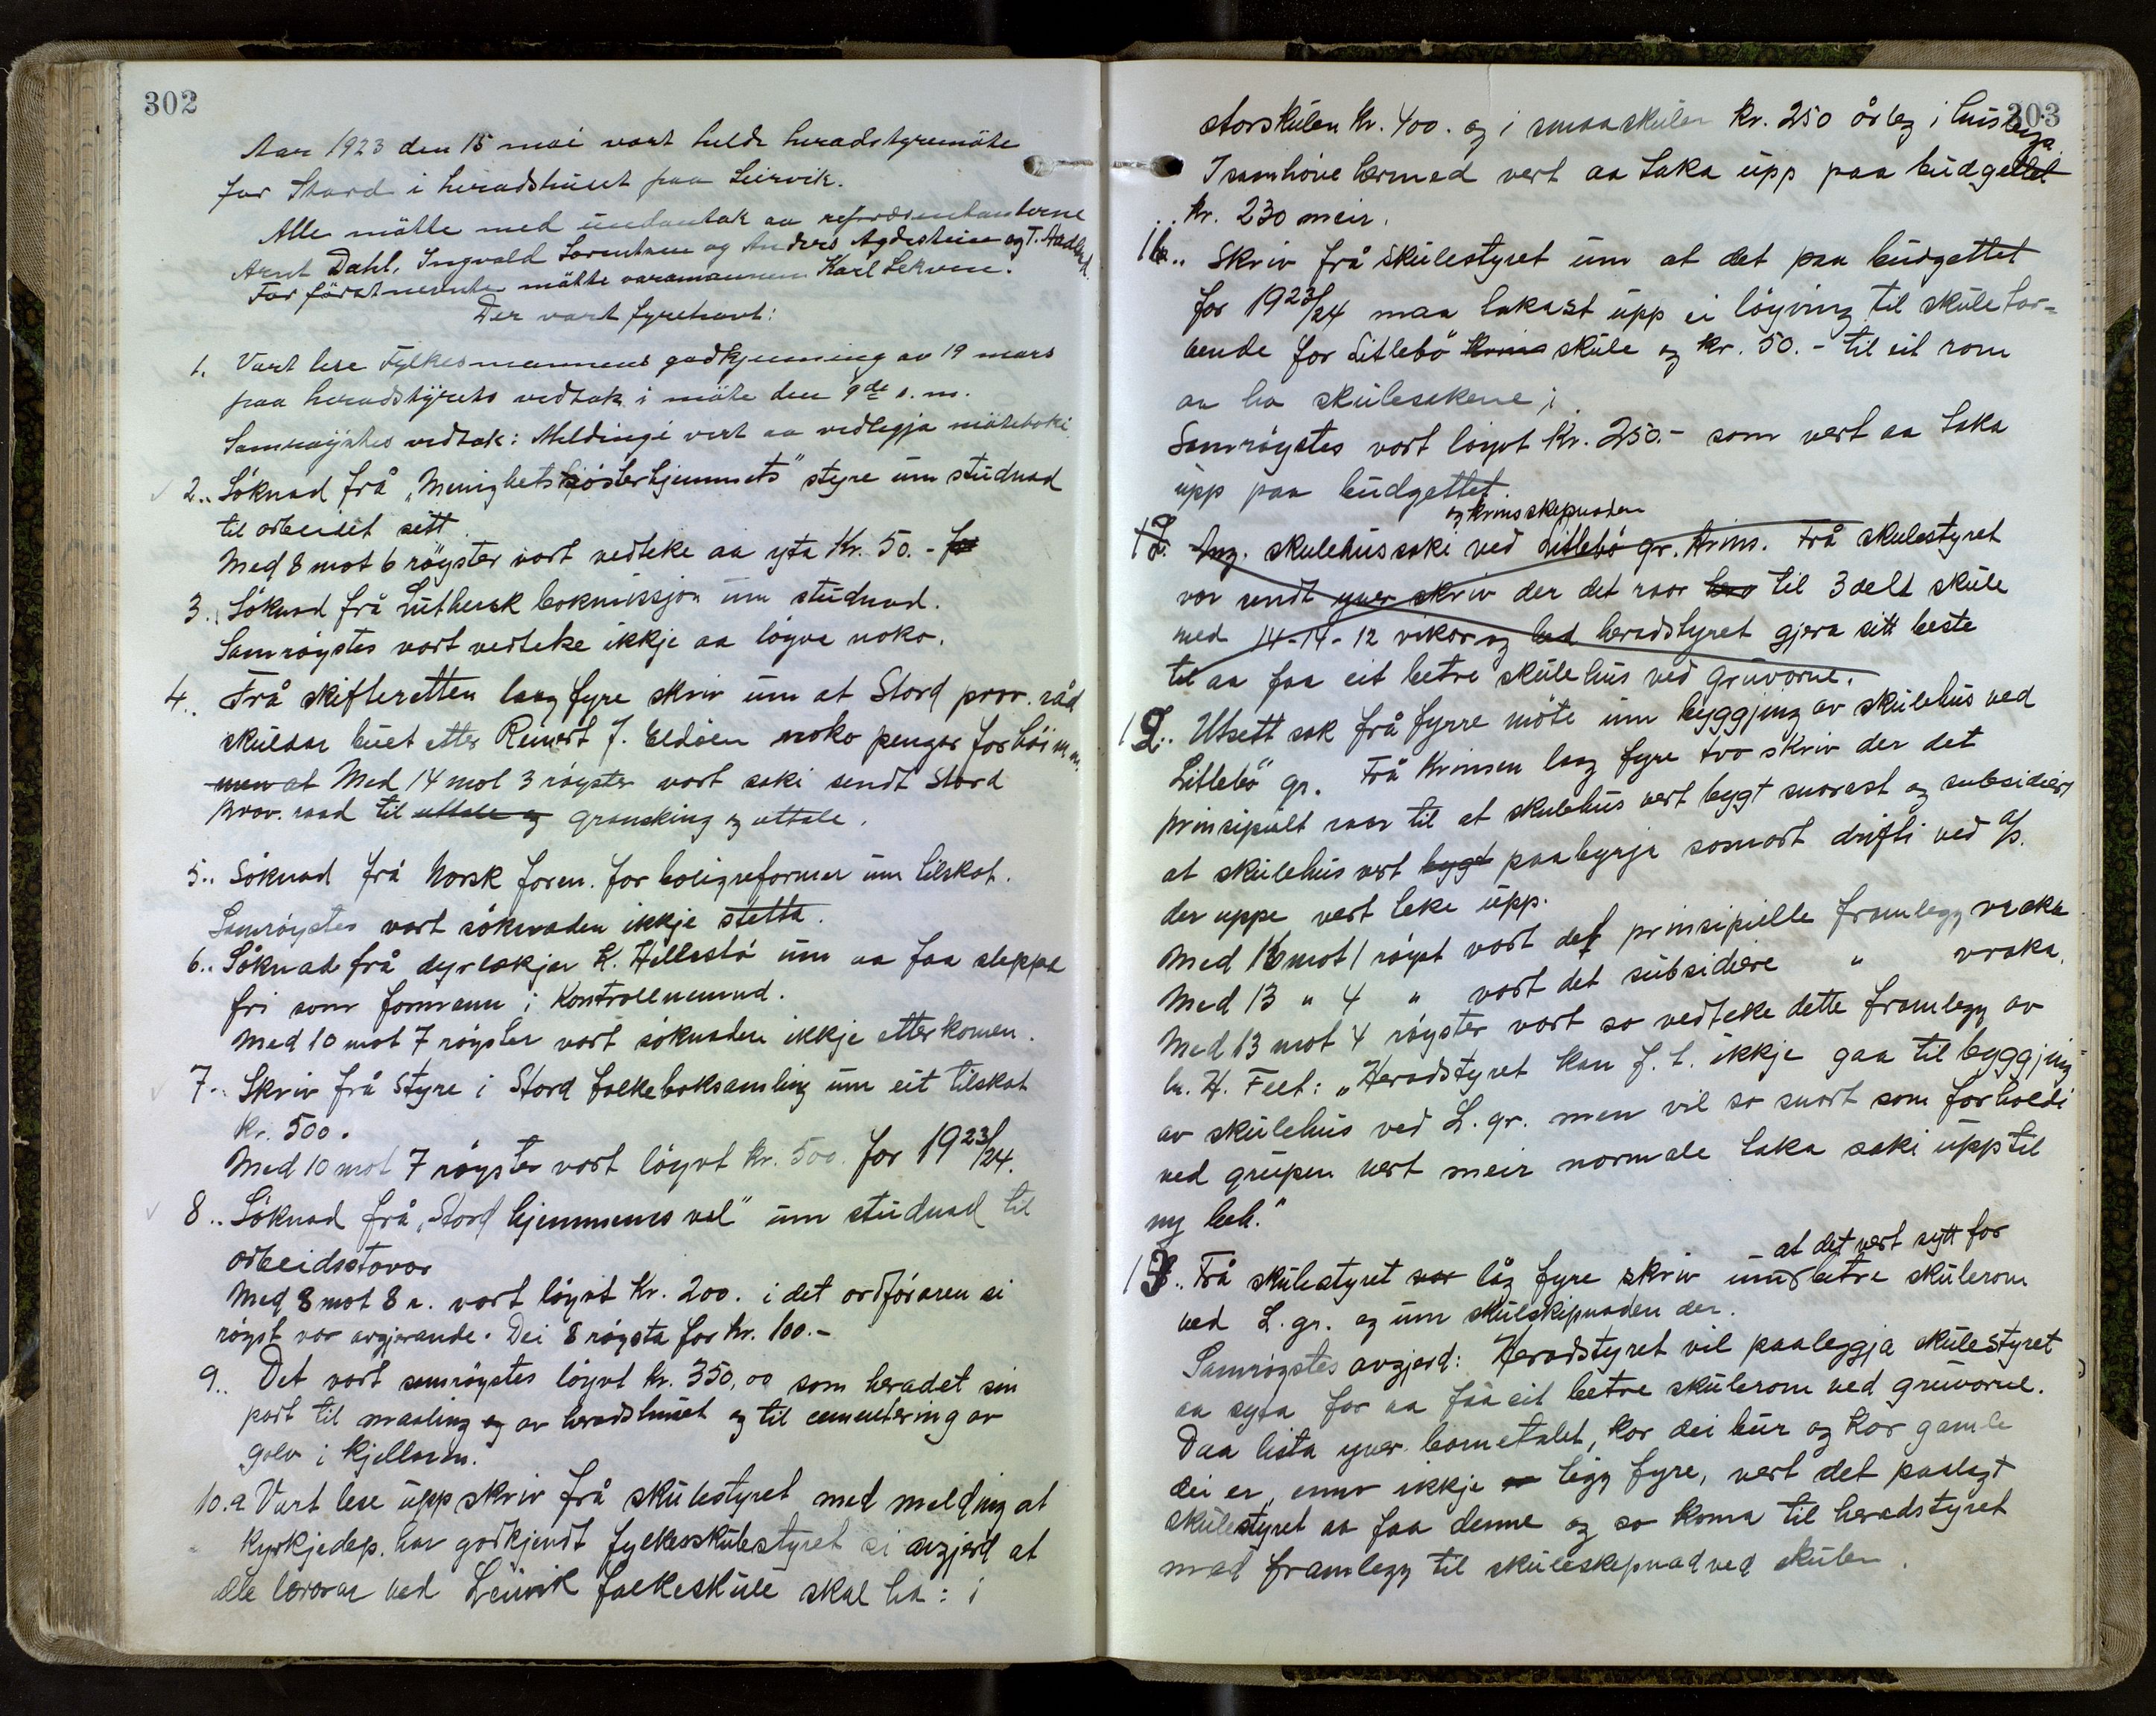 302
Aar 1923 den 15 mai vart helde heradstyremöte
for Stord i heradshuset paa Leirvik.
Alle mötte med undantak av representantene
Arnt Dahl, Ingvald Sorentsen og Anders Agdestein og T. Aadland.
For förstnevnte mötte varamannen Karl Lekven.
Der vart fyrehavt:
1. Vart lese Fylkesmannens godkjenning av 19 mars
paa heradstyrets vedtak i möte den 9de s. m.
Samröystes vedtak: Meldingi vert aa vedlegja möteboki.
2.. Söknad frå "Menighetssjösterhjemmets" styre um studnad
til arbeidet sitt.
Med 8 mot 6 röyster vart vedteke aa yta Kr. 50.-
3.. Söknad frå Luthersk bokmissjon um studnad.
Samröystes vart vedteke ikkje aa löyva noko.
4.. Frå skifteretten laag fyre skriv um at Stord prov. råd
skuldar buet etter Reinert J. Eldöen noko pengar for höi m.m.
men at Med 14 mot 3 röyster vart saki sendt Stord
prov. raad til uttale og gransking og uttale.
5.. Söknad frå Norsk foren. for boligreformer um tilskot.
Samröystes vart söknaden ikkje stetta.
6.. Söknad frå dyrlækjar K. Hillestö um aa faa sleppa
fri som formann i Kontrollnemnd.
Med 10 mot 7 röyster vart söknaden ikkje etterkomen.
7.. Skriv frå styre i Stord folkeboksamling um eit tilskot
kr. 500.
Med 10 mot 7 röyster vart löyvt kr. 500. for 1923/24.
8.. Söknad frå "Stord hjemmenes vel" um studnad til
arbeidsstovor
Med 8 mot 8 r. vart löyvt Kr. 200. i det ordföraren si
röyst var avgjerande. Dei 8 röysta for kr. 100.-
9.. Det vart samröystes löyvt kr. 350,00 som heradet sin
part til maaling og av heradshuset og til cementering av
golv i kjellaren.
10.a Vart lese upp skriv frå skulestyret med melding at
Kyrkjedep. har godkjendt fylkesskulestyret si avgjerd at
alle lærarar ved Leirvik folkeskule skal ha: i
303
storskulen kr. 400. og i smaaskulen kr. 250 årleg i husleiga.
I samhöve hermed vert aa taka upp paa budgettet
kr. 230 meir.
11.. Skriv frå skulestyret um at det paa budgettet
for 1923/24 maa takast upp ei löyving til skuletor=
bende for Litlebö krins skule og kr. 50.- til eit rom
aa ha skulesakene i
Samröystes vart löyvt Kr. 250.- som vert aa taka
upp paa budgettet.
og krinsskepnaden
12. Ang. skulehussaki ved Litlebö gr. krins. Frå skulestyret
var sendt yver skriv der det raar til 3 delt skule
med 14-14-12 vikor og bad heradstyret gjera sitt beste
til aa faa eit betre skulehus ved gruvorne.
12.. Utsett sak frå fyrre möte um byggjing av skulehus ved
Litlebö gr. Frå Krinsen laag fyre tvo skriv der det
prinsipalt raar til at skulehus vert bygt snarast og subsidiært
at skulehus vert bygt paabyrja somart drifti ved a/s.
der uppe vert teke upp.
Med 16 mot 1 röyst vart det prinsipielle framlegg vraka
Med 13 " 4 " vart det subsidiere " vraka.
Med 13 mot 4 röyster vart so vedteke dette framlegg av
hr. H. Feet: "Heradstyret kan f. t. ikkje gaa til byggjing
av skulehus ved L. gr. men vil so snart som forholdi
ved grupen vert meir normale taka saki upp til
ny beh."
at det vert sytt for
13.. Frå skulestyret var låg fyre skriv um betre skulerom
ved L. gr. og um skulskipnaden der.
Samröystes avgjerd: Heradstyret vil paaleggja skulestyret
aa syta for aa faa eit betre skulerom ved gruvorne.
Daa lista yver barnetalet, kor dei bur og kor gamle
dei er, enno ikkje ligg fyre, vert det paalagt
skulestyret aa faa denne og so koma til heradstyret
med framlegg til skuleskepnad ved skulen.